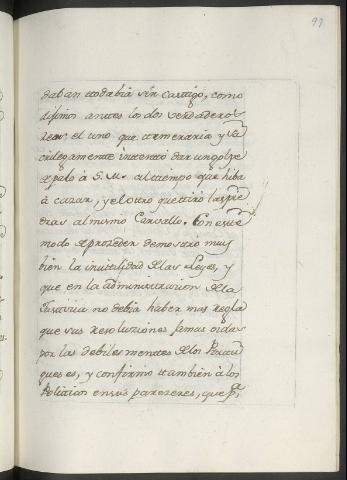 97
daban todabia sin castigo, como
disimos antes los dos verdaderos
reos. el uno que temeraria y sa
crilegamente intentó dar un golpe
de palo à S. M. al tiempo que hiba
à cazar, y el otro que tiró las pie
dras al mismo Carvallo. Con este
modo de proceder demostró muy
bien la inutilidad de las Leyes, y
que en la administracion de la
Justicia no debia haber mas regla
que sus resoluziones jamas oidas
por las debiles mentes de los Portu
gueses, y confirmó tambien à los
Politicos en sus pareceres, que